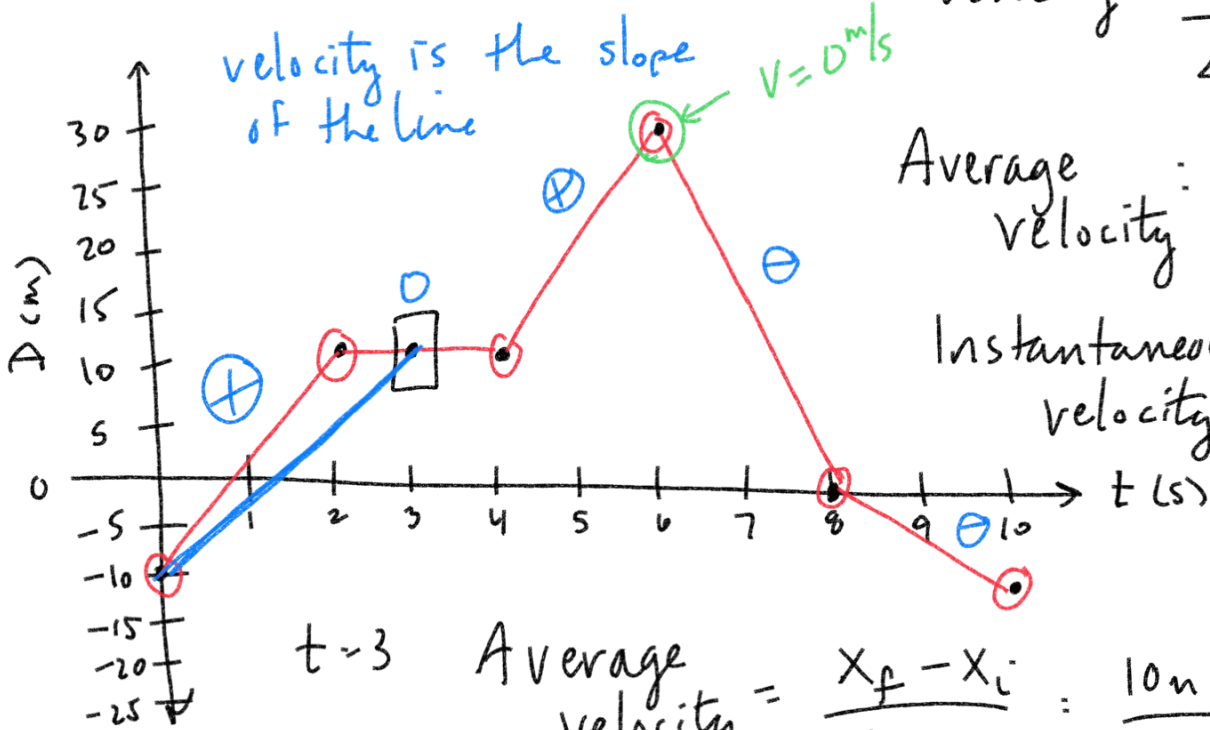 velocity is the slope
of the line
V = 0 m/s
Average
velocity :
Instantaneo
velocity
D (m)
30
25
20
15
10
5
0
-5
-10
-15
-20
-25
+
0
+
−
−
1 2 3 4 5 6 7 8 9 10
t (s)
t = 3
Average
velocity = Xf - Xi : 10m